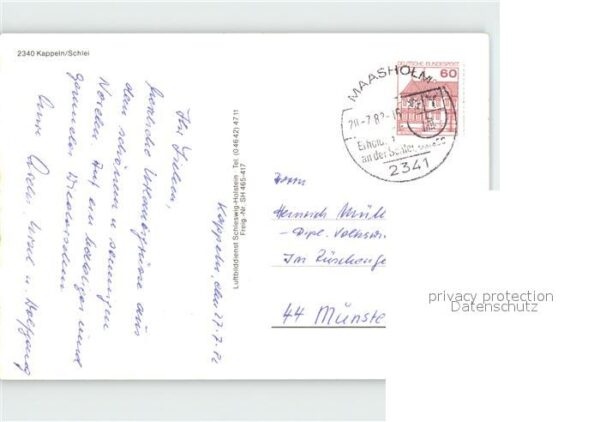 2340 Kappeln/Schlei
Kappeln, den 27.7.82
Ihr Lieben,
herzliche Urlaubsgrüsse aus
dem schönen u. sonnigen
Norden. Auf ein baldiges und
gesundes Wiedersehen
Eure
u. Wolfgang
Luftbilddienst Schleswig-Holstein Tel. (04642) 4711
Freig.-Nr. SH 465-417
DEUTSCHE BUNDESPOST
60
MAASHOLM
an der Schlei
2341
Herrn
Heinrich Mül
- Dipl. Volksw.
Im
44 Münste
privacy protection
Datenschutz